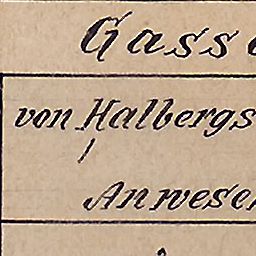 Gasse
von Halbergs
Anwesen